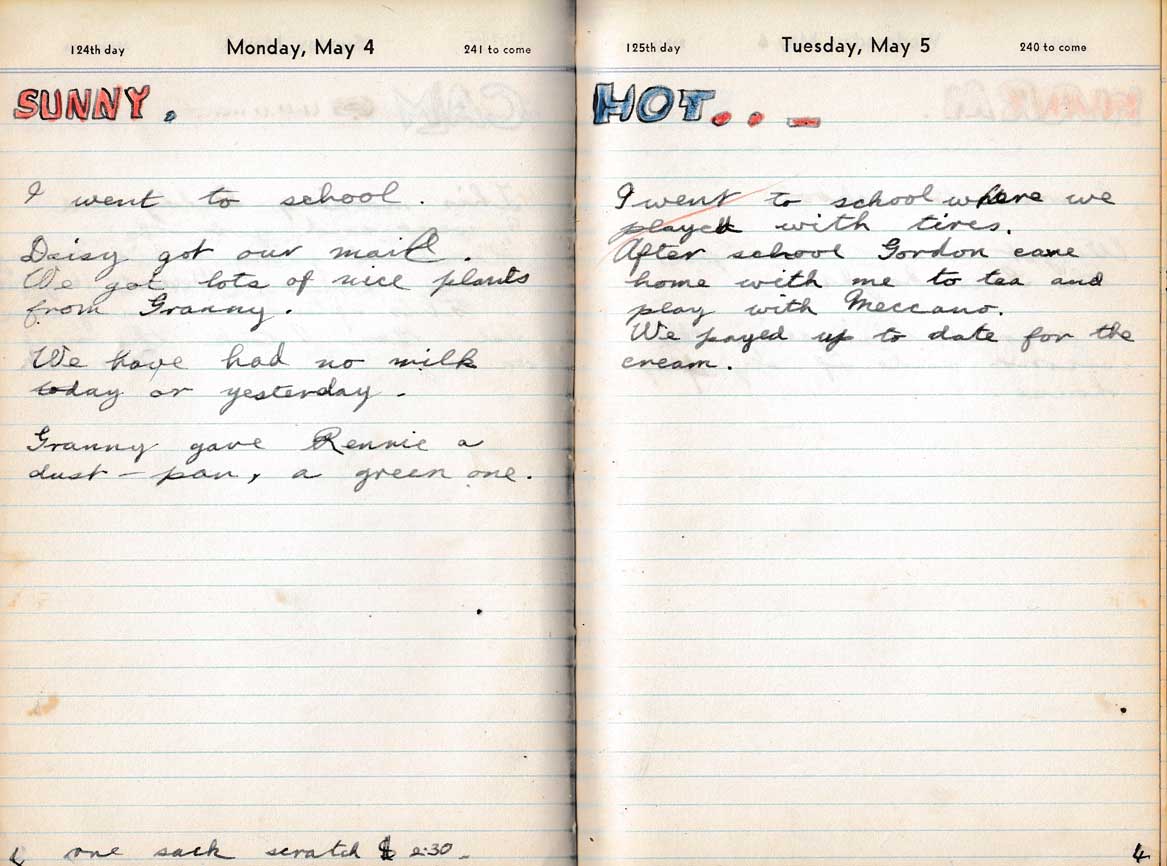 124th day Monday, May 4 241 to come
SUNNY.
I went to school.
Daisy got our mail.
We got lots of nice plants
from Granny.
We have had no milk
today or yesterday.
Granny gave Rennie a
dust-pan, a green one.
one sack scratch $ 2:30_
125th day Tuesday, May 5 240 to come
HOT.._
I went to school where we
played with tires.
After school Gordon came
home with me to tea and
play with Meccano.
We payed up to date for the
cream.
4